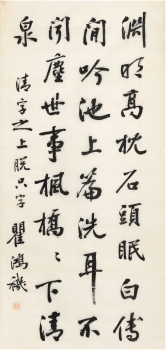 淵明高枕石頭眠白傅
閒吟池上篇洗耳不
聞塵世事楓橋橋下清
泉
清字之上脫只字 瞿鴻禨